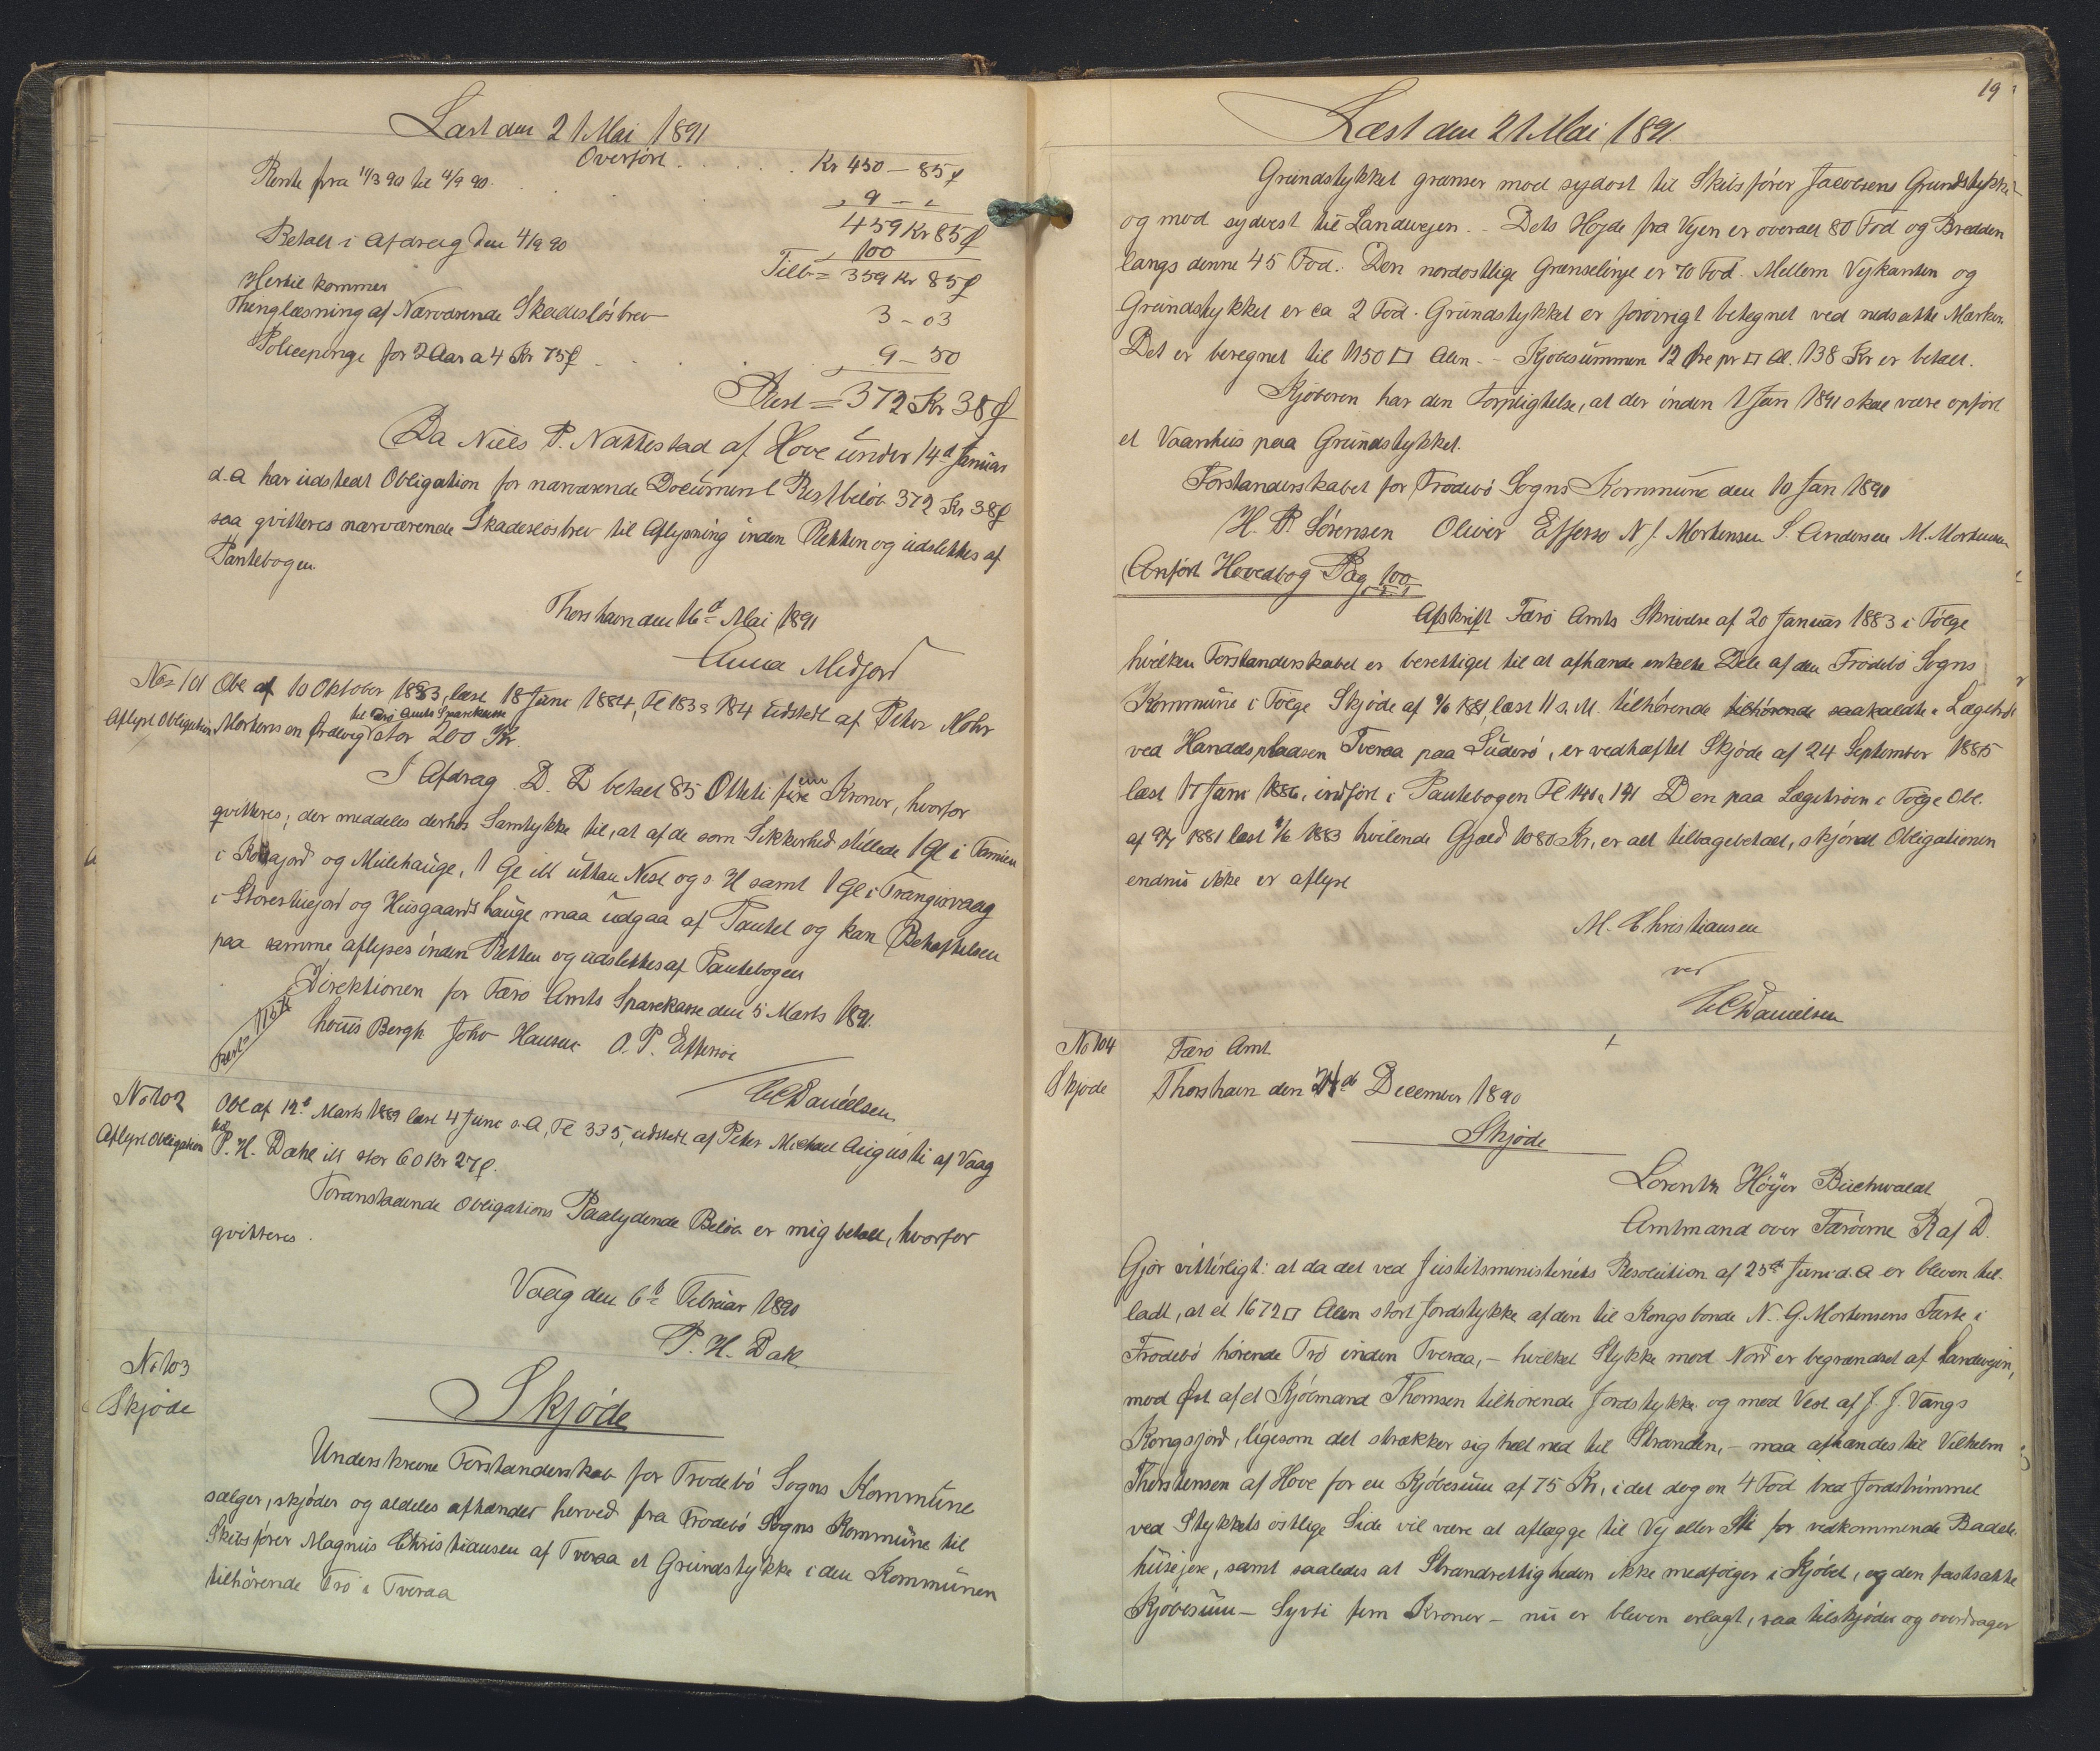 Læst den 21 Mai 1891
Overført . . . . . Kr 450 – 85 ϕ
Rente fra 11/3 90 til 4/9 90. . . „ 9 – „
459 Kr 85 ϕ
Betalt i Afdrag den 4/9 90 „ 100
Tilb = 359 Kr 85 ϕ
Hertil kommer
Thinglæsning af Nærværende Skadesløsbrev 3 – 03
Policepenge for 2 Aar a 4 Kr 75 ϕ . . . „ 9 – 50
Rest = 372 Kr 38 ϕ
Da Niels P. Nattestad af Hove under 14d Januar
d. A har udstedt Obligation for nærværende Document Restbeløb 372 Kr 38 ϕ
saa qvitteres nærværende Skadesløsbrev til Aflysning inden Retten og udslettes af
Pantebogen.
Thorshavn den 16d Mai 1891
Anna Midjord
No 101
Aflyst Obligation
Obl af 10 Oktober 1883, læst 18 Juni 1884, Fl 183 a 184 udstedt af Peter Mohr
til Færø Amts Sparekasse
Mortensen Øralvig stor 200 Kr.
I Afdrag D. D betalt 85 Otteti fem Kroner, hvorfor
qvitteres; der meddeles derhos Samtykke til, at af de som Sikkerhed stillede 1 Gl i Famien
i og Mulehauge, 1 Gl ibd uttan Nest og s H samt 1 Gl i Trangisvaag
i Storestuejord og Husgaards hauge maa udgaa af Pantet og kan Behæftelsen
paa samme aflyses inden Retten og udslettes af Pantebogen
Direktionen for Færø Amts Sparekasse den 5 Marts 1891.
Rest = 115 Kr
Louis Bergh Johs Hansen O. P. Effersøe
CDanielsen
No 102
Aflyst Obligation
Obl af 12t Marts 1889 læst 4 Juni s. A, Fl 335, udstedt af Peter Michael Augusti af Vaag
til
P. H. Dahl ib stor 60 Kr 27 ϕ.
Foranstaaende Obligations Paalydende Beløb er mig betalt, hvorfor
qvitteres.
Vaag den 6t Februar 1890
P. H. Dahl
No 103
Skjøde
Skjøde
Underskrevne Forstanderskab for Frodebø Sogns Kommune
sælger, skjøder og aldeles afhænder herved fra Frodebø Sogns Kommune til
Skibsfører Magnus Christiansen af Tveraa et Grundstykke i den Kommunen
tilhørende Trø i Tveraa
19
Læst den 21 Mai 1891.
Grundstykket grænser mod sydost til Skibsfører Jacobsens Grundstykke
og mod sydvest til Landvejen. – Dets Højde fra Vejen er overalt 80 Fod og Bredden
langs denne 45 Fod. Den nordostlige Grænselinje er 70 Fod. Mellem Vejkanten og
Grundstykket er ca 2 Fod. Grundstykket er forøvrigt betegnet ved nedsatte Mærker.
Det er beregnet til 1150 □ Alen. – Kjøbesummen 12 Øre pr □ Al. 138 Kr er betalt.
Kjøberen har den Forpligtelse, at der inden 1 Jan 1891 skal være opført
et Vaanhus paa Grundstykket.
Forstanderskabet for Frodebø Sogns Kommune den 10 Jan 1890
H. P. Sørensen Oliver Effersø N J. Mortensen S. Andersen M. Mortensen
Anført Hovedbog Pag 100
Afskrift Færø Amts Skrivelse af 20 Januar 1883 i Følge
hvilken Forstanderskabet er berettiget til at afhænde enkelte Dele af den Frodebø Sogns
Kommune i Følge Skjøde af 9/6 1881, læst 11 s. M. tilhørende tilhørende saakaldte „ Lægetrø
ved Handelspladsen Tveraa paa Suderø, er vedhæftet Skjøde af 24 September 1885
læst 17 Juni 1886, indført i Pantebogen Fl 140 a 141 Den paa Lægetrøen i Følge Obl.
af 9/7 1881 læst 4/6 1883 hvilende Gjæld 1080 Kr, er alt tilbagebetalt, skjøndt Obligationen
endnu ikke er aflyst
M. Christiansen
ved
CDanielsen
No 104
Skjøde
Færø Amt
Thorshavn den 24de December 1890
Skjøde
Lorentz Høyer Buchwaldt
Amtmand over Færøerne R af D.
Gjør vitterligt: at da det ved Justitsministeriets Resolution af 25de Juni d. A er bleven til-
ladt, at et 1672 □ Alen stort Jordstykke af den til Kongsbonde N. G. Mortensens Fæste i
Frodebø hørende Trø inden Tveraa, – hvilket Stykke mod Nord er begrændset af Landvejen,
mod Øst af et Kjøbmand Thomsen tilhørende Jordstykke og mod Vest af J. J. Vangs
Kongsjord, ligesom det strækker sig helt ned til Stranden, – maa afhændes til Vilhelm
Thorstensen af Hove for en Kjøbesum af 75 Kr, idet dog en 4 Fod bred Jordstrimmel
ved Stykkets østlige Side vil være at aflægge til Vej eller Sti for vedkommende Baade-
husejere, samt saaledes at Strandrettigheden ikke medfølger i Kjøbet, og den fastsatte
Kjøbesum – Syvti fem Kroner – nu er bleven erlagt, saa tilskjøder og overdrager